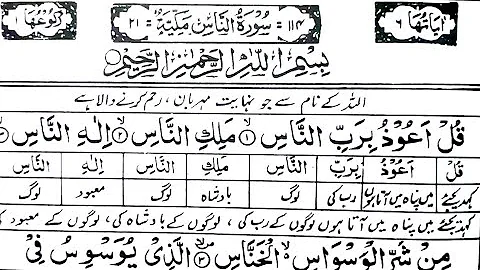 اٰیَاتُهَا ٦ ۝ ١١٤ = سُوْرَةُ النَّاسِ مَكِّيَّةٌ = ٢١ ۝ رُكُوْعُهَا ١
بِسْمِ اللهِ الرَّحْمٰنِ الرَّحِيْمِ
اللہ کے نام سے جو نہایت مہربان، رحم کرنے والا ہے
قُلْ اَعُوْذُ بِرَبِّ النَّاسِ ۝١ مَلِكِ النَّاسِ ۝٢ اِلٰهِ النَّاسِ ۝٣
قُلْ اَعُوْذُ بِرَبِّ النَّاسِ مَلِكِ النَّاسِ اِلٰهِ النَّاسِ
کہہ دیجئے میں پناہ میں آتا ہوں رب کی لوگ بادشاہ لوگ معبود لوگ
کہہ دیجئے میں پناہ میں آتا ہوں لوگوں کے رب کی، لوگوں کے بادشاہ کی، لوگوں کے معبود کی
مِنْ شَرِّ الْوَسْوَاسِ الْخَنَّاسِ ۝٤ الَّذِيْ يُوَسْوِسُ فِيْ